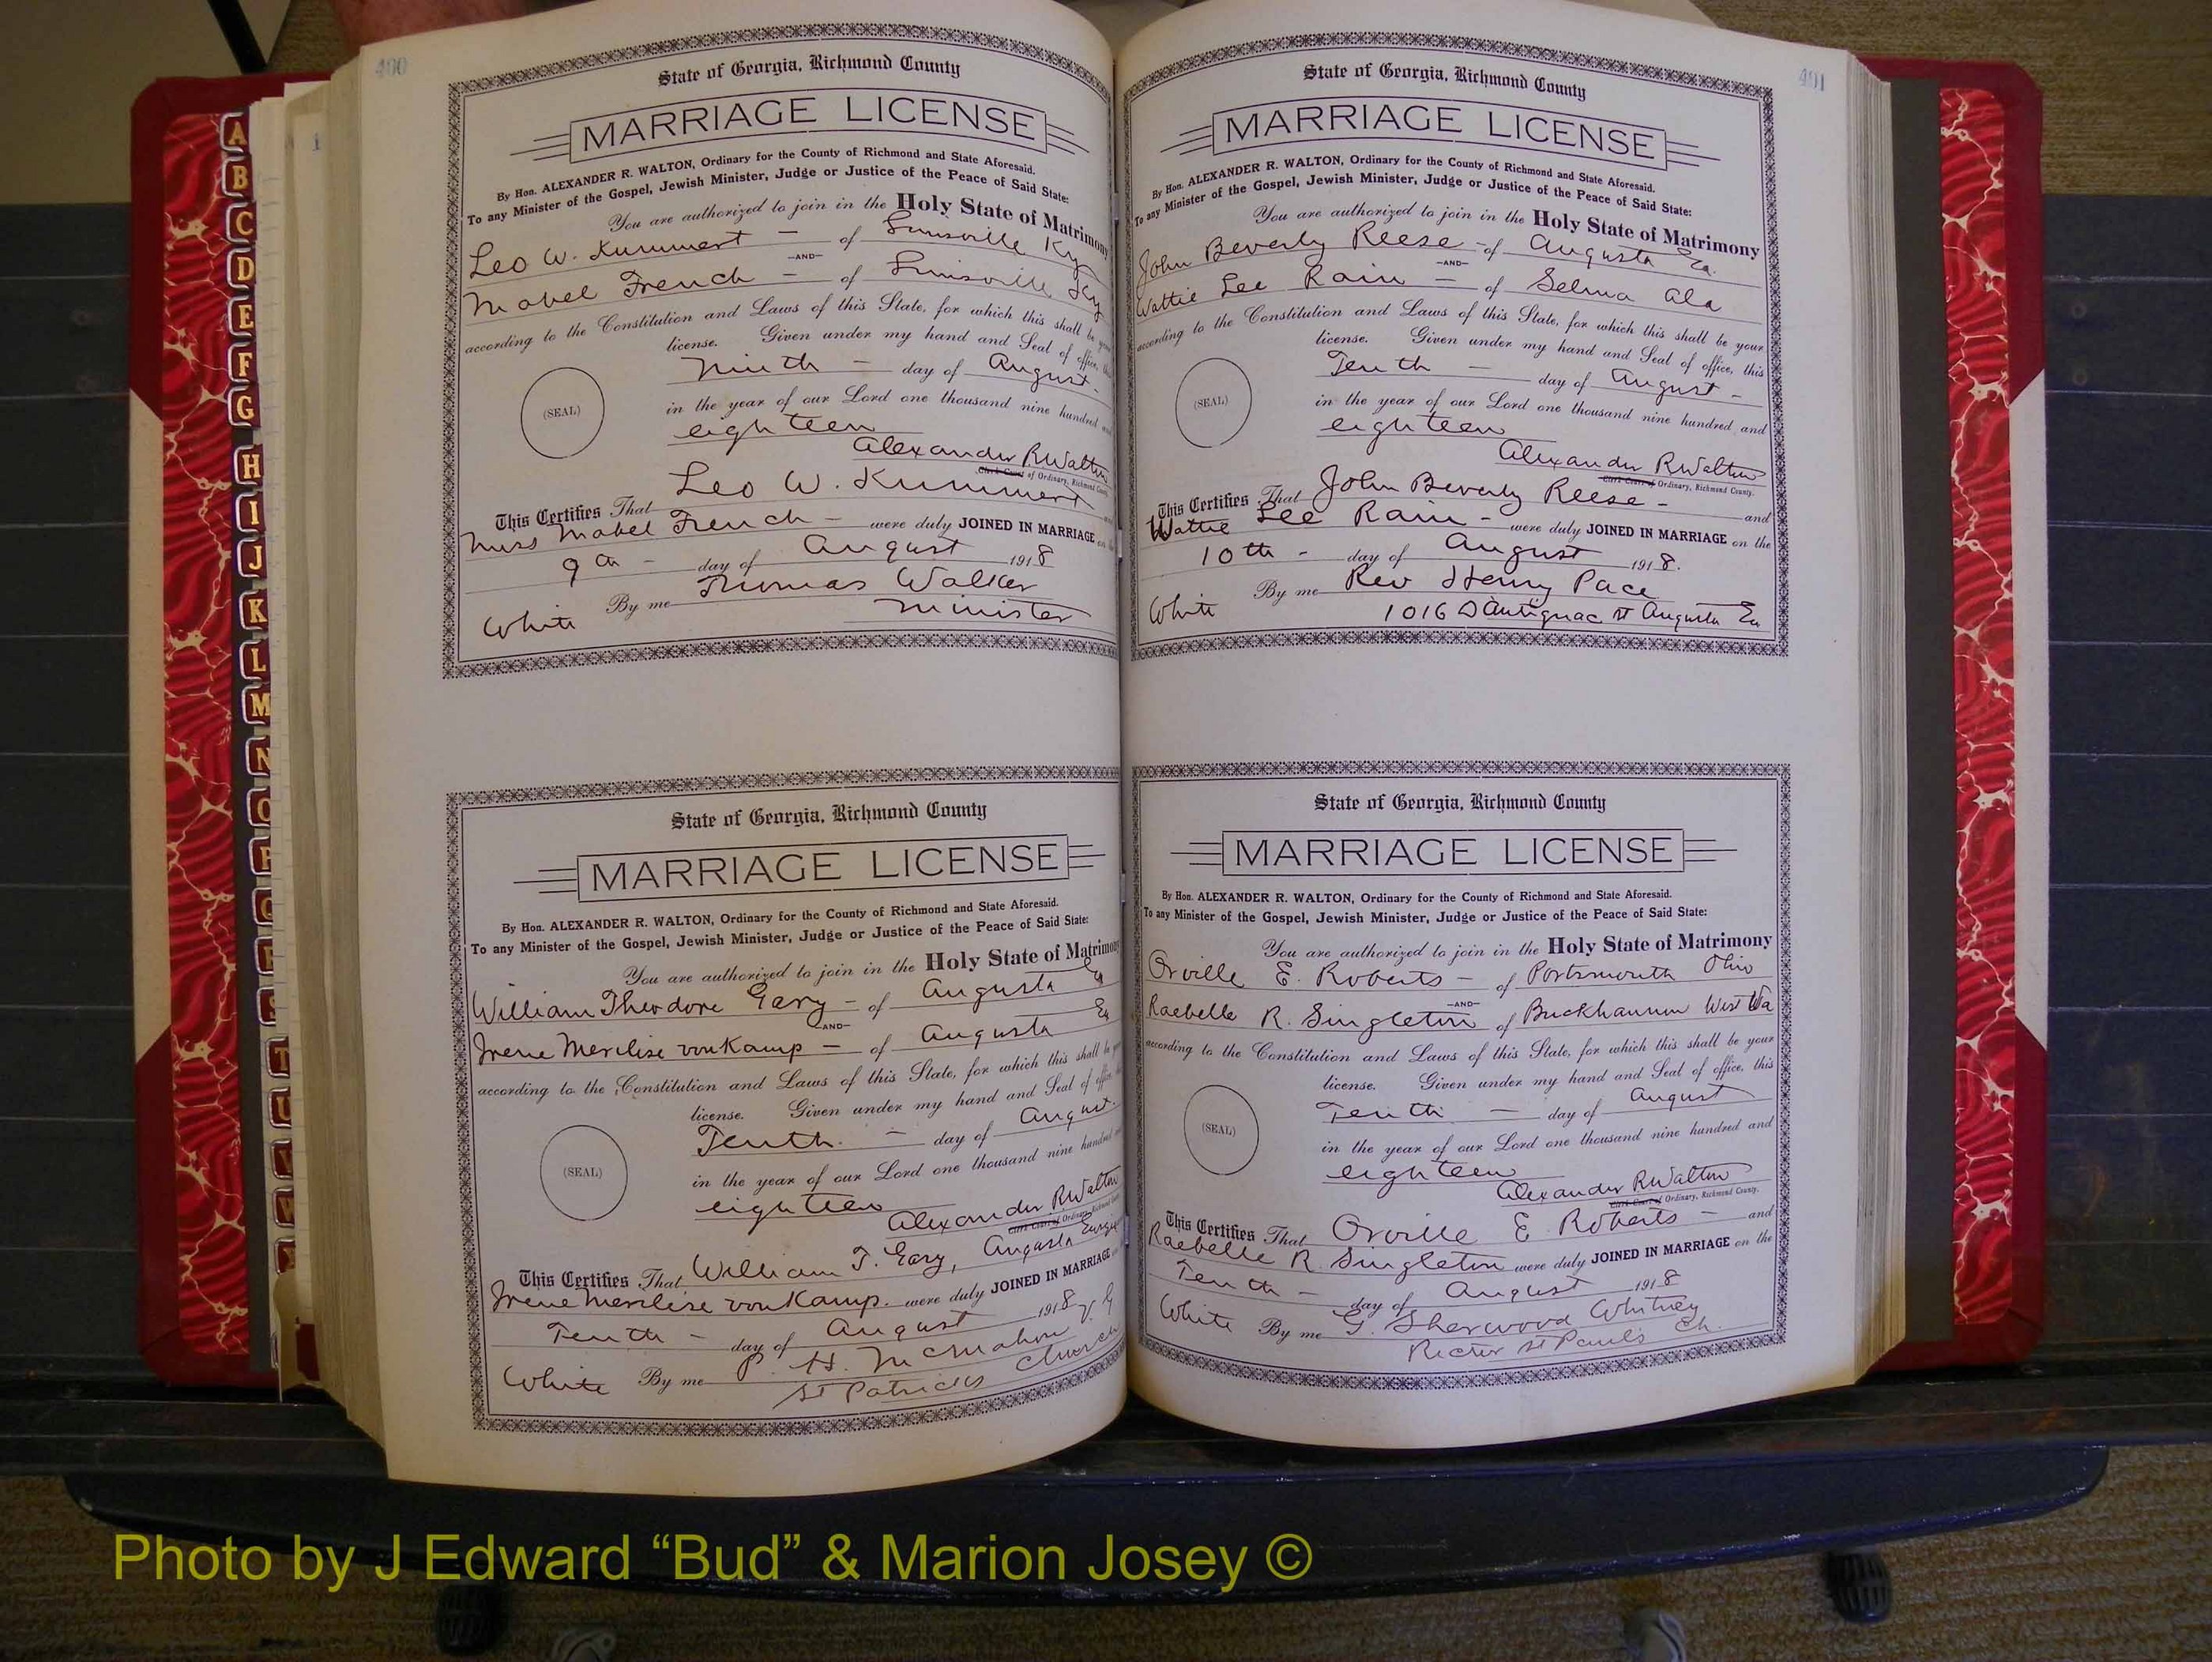 400
State of Georgia, Richmond County
MARRIAGE LICENSE
By Hon. ALEXANDER R. WALTON, Ordinary for the County of Richmond and State Aforesaid.
To any Minister of the Gospel, Jewish Minister, Judge or Justice of the Peace of Said State:
You are authorized to join in the Holy State of Matrimony
Leo W. Kummert - of Louisville Ky
-AND-
Mabel French - of Louisville Ky
according to the Constitution and Laws of this State, for which this shall be your
license. Given under my hand and Seal of office, this
ninth - day of August -
(SEAL)
in the year of our Lord one thousand nine hundred and
eighteen
Alexander R Walton
Clerk Court of Ordinary, Richmond County.
This Certifies That Leo W. Kummert
Miss Mabel French - were duly JOINED IN MARRIAGE on the
9th - day of August 1918
By me Thomas Walker
White Minister
State of Georgia, Richmond County
MARRIAGE LICENSE
By Hon. ALEXANDER R. WALTON, Ordinary for the County of Richmond and State Aforesaid.
To any Minister of the Gospel, Jewish Minister, Judge or Justice of the Peace of Said State:
You are authorized to join in the Holy State of Matrimony
William Theodore Gary - of Augusta Ga
-AND-
Irene Merilise von Kamp - of Augusta Ga
according to the Constitution and Laws of this State, for which this shall be your
license. Given under my hand and Seal of office, this
Tenth. - day of August.
(SEAL)
in the year of our Lord one thousand nine hundred
eighteen
Alexander R Walton
Clerk Court of Ordinary, Richmond County
This Certifies That William T. Gary, Augusta Georgia
Irene Merilise von Kamp. were duly JOINED IN MARRIAGE
Tenth - day of August 1918
White By me P. H. McMahon V. G
St Patricks Church
401
State of Georgia, Richmond County
MARRIAGE LICENSE
By Hon. ALEXANDER R. WALTON, Ordinary for the County of Richmond and State Aforesaid.
To any Minister of the Gospel, Jewish Minister, Judge or Justice of the Peace of Said State:
You are authorized to join in the Holy State of Matrimony
John Beverly Reese - of Augusta Ga.
-AND-
Wattie Lee Rain - of Selma Ala
according to the Constitution and Laws of this State, for which this shall be your
license. Given under my hand and Seal of office, this
Tenth - day of August -
(SEAL)
in the year of our Lord one thousand nine hundred and
eighteen
Alexander R Walton
Clerk Court of Ordinary, Richmond County.
This Certifies That John Beverly Reese - and
Wattie Lee Rain - were duly JOINED IN MARRIAGE on the
10th - day of August 1918.
By me Rev Henry Pace
White 1016 D'Antignac St Augusta Ga
State of Georgia, Richmond County
MARRIAGE LICENSE
By Hon. ALEXANDER R. WALTON, Ordinary for the County of Richmond and State Aforesaid.
To any Minister of the Gospel, Jewish Minister, Judge or Justice of the Peace of Said State:
You are authorized to join in the Holy State of Matrimony
Orville E. Roberts - of Portsmouth Ohio
-AND-
Raebelle R. Singleton of Buckhannon West Va
according to the Constitution and Laws of this State, for which this shall be your
license. Given under my hand and Seal of office, this
Tenth - day of August
(SEAL)
in the year of our Lord one thousand nine hundred and
eighteen
Alexander R Walton
Clerk Court of Ordinary, Richmond County.
This Certifies That Orville E Roberts - and
Raebelle R. Singleton were duly JOINED IN MARRIAGE on the
Tenth - day of August 1918
White By me G. Sherwood Whitney
Rector St Paul's Ch.
A
B
C
D
E
F
G
H
I
J
K
L
M
N
O
P
Q
R
S
T
U
V
W
Photo by J Edward “Bud” & Marion Josey ©